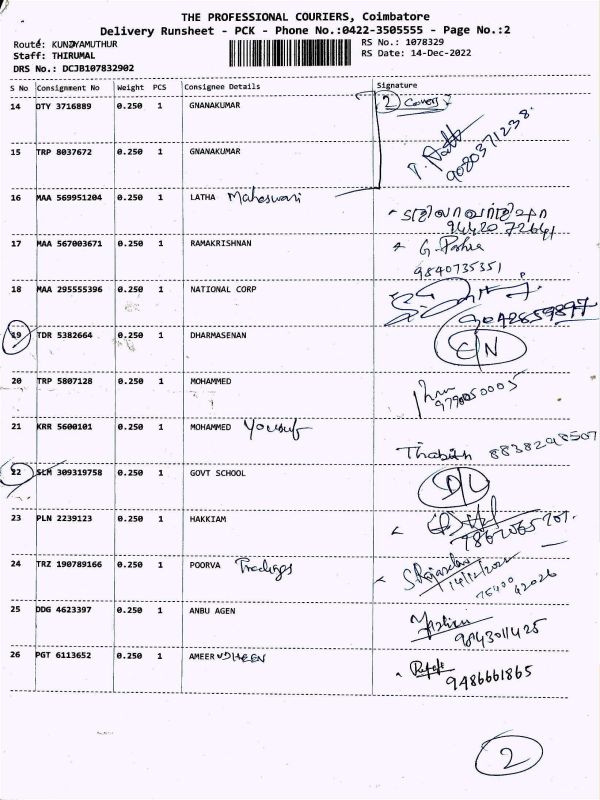 THE PROFESSIONAL COURIERS, Coimbatore
Delivery Runsheet - PCK - Phone No.:0422-3505555 - Page No.:2
Route: KUNIYAMUTHUR
Staff: THIRUMAL
DRS No.: DCJB107832902
RS No.: 1078329
RS Date: 14-Dec-2022
S No Consignment No Weight PCS Consignee Details Signature
14 DTY 3716889 0.250 1 GNANAKUMAR 2 Covers
15 TRP 8037672 0.250 1 GNANAKUMAR 9080371238
16 MAA 569951204 0.250 1 LATHA Maheswari
94420 72641
17 MAA 567003671 0.250 1 RAMAKRISHNAN
9840735351
18 MAA 295555396 0.250 1 NATIONAL CORP
9042859897
19 TDR 5382664 0.250 1 DHARMASENAN E/N
20 TRP 5807128 0.250 1 MOHAMMED
21 KRR 5600101 0.250 1 MOHAMMED Yousuf Thabish 8838298507
22 SLM 309319758 0.250 1 GOVT SCHOOL D/L
23 PLN 2239123 0.250 1 HAKKIAM
24 TRZ 190789166 0.250 1 POORVA Tradings
14/12/2022
75400 42026
25 DDG 4623397 0.250 1 ANBU AGEN
9843011425
26 PGT 6113652 0.250 1 AMEER UDHEEN
9486661865
2